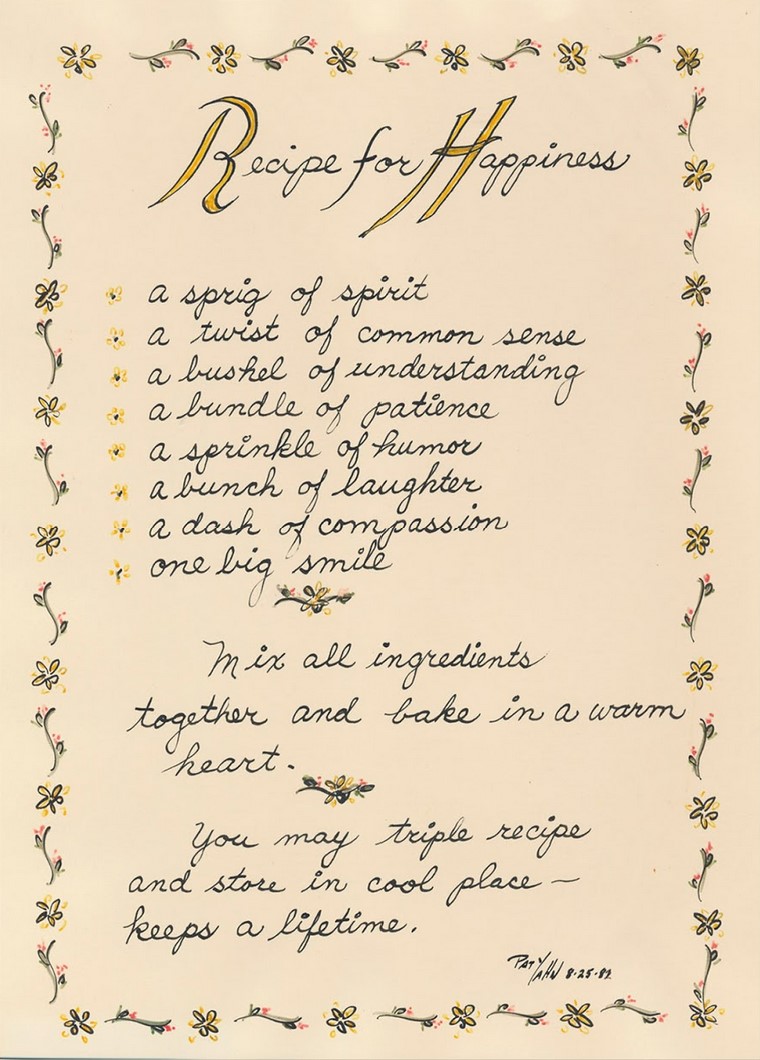 Recipe for Happiness
a sprig of spirit
a twist of common sense
a bushel of understanding
a bundle of patience
a sprinkle of humor
a bunch of laughter
a dash of compassion
one big smile
Mix all ingredients
together and bake in a warm
heart.
You may triple recipe
and store in cool place –
keeps a lifetime.
Pat Yahn 8-25-82